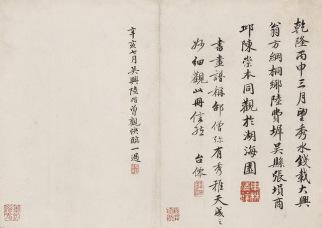 乾隆丙申三月望秀水錢載大興
翁方綱桐鄉陸費墀吳縣張塤商
邱陳崇本同觀於湖海園
書畫譜稱郃僧彌有秀雅天成之
妙細觀此冊信然
辛亥七月吳興陸 曾觀快臨一過